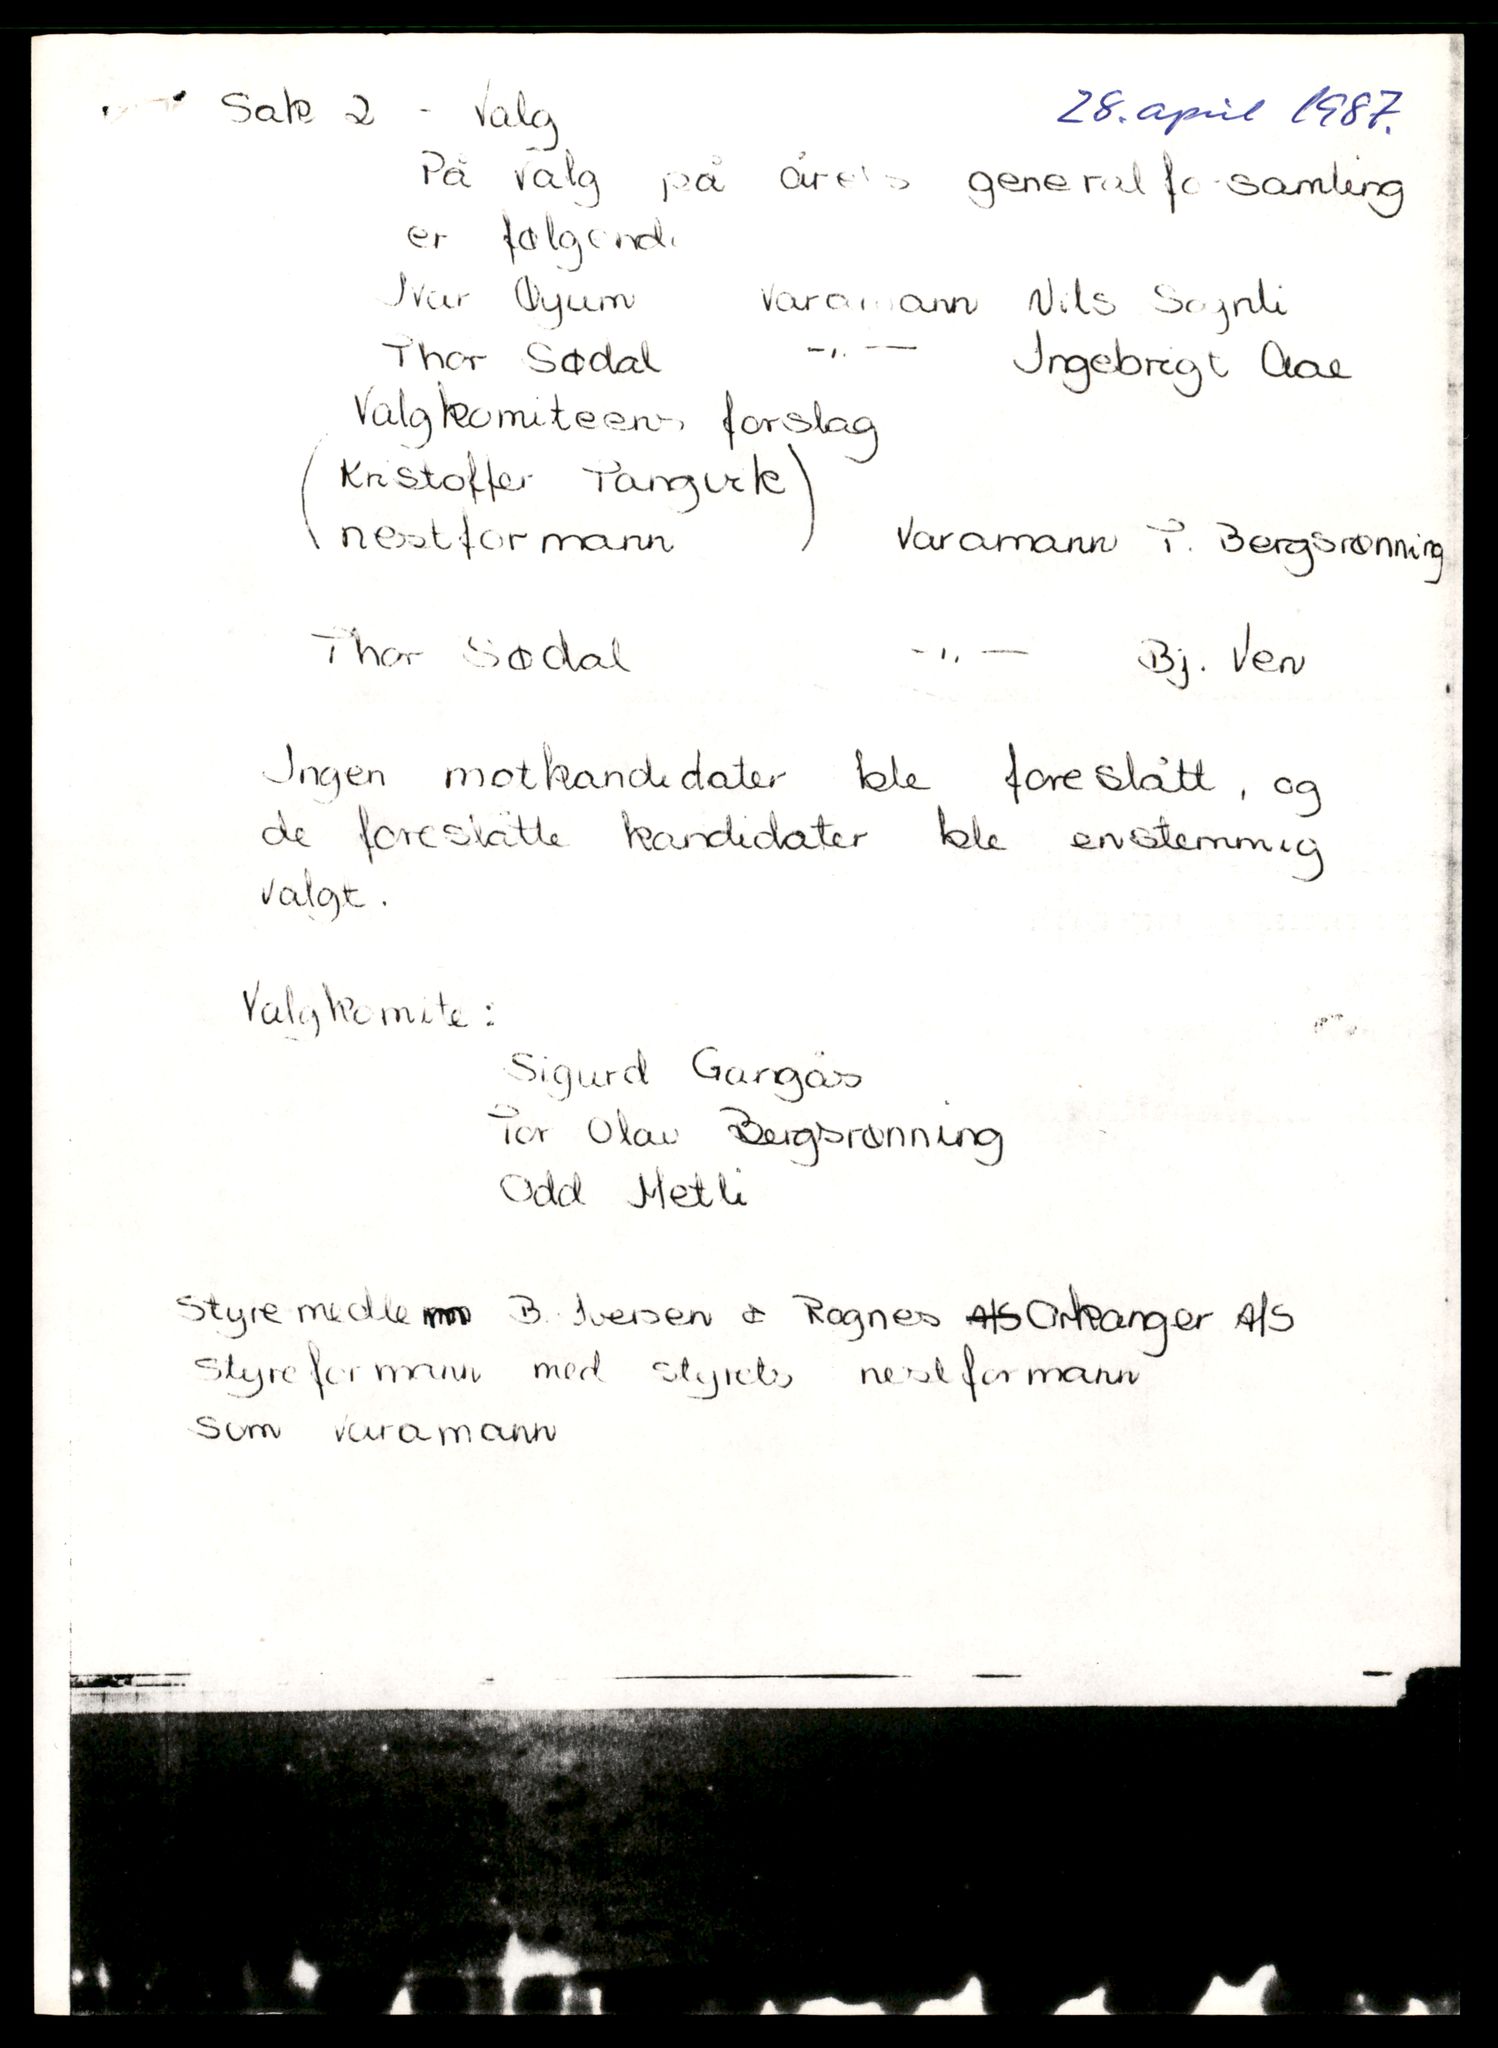 Sak 2 - Valg
28. april 1987.
På valg på årets generalforsamling
er følgende
Ivar Øyum varamann Nils Sognli
Thor Sødal -"- Ingebrigt Aae
Valgkomiteens forslag
(Kristoffer Tangvik
nestformann) varamann T. Bergsrønning
Thor Sødal -"- Bj. Ven
Ingen motkandidater ble foreslått, og
de foreslåtte kandidater ble enstemmig
valgt.
Valgkomite:
Sigurd Gangås
Tor Olav Bergsrønning
Odd Metli
Styremedlem B. Iversen & Rognes A/S Orkanger A/S
Styreformann med styrets nestformann
som varamann